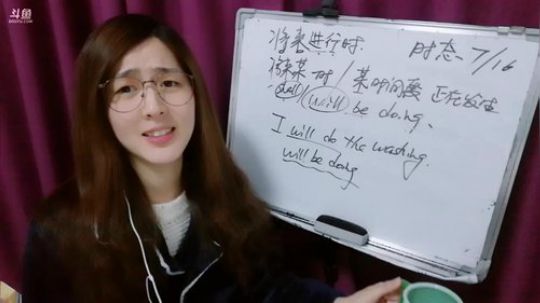 斗鱼
DOUYU.COM
将来进行时. 时态 7/16
将来某 时刻 / 某时间段 正在发生
shall / will be doing.
I will do the washing.
will be doing